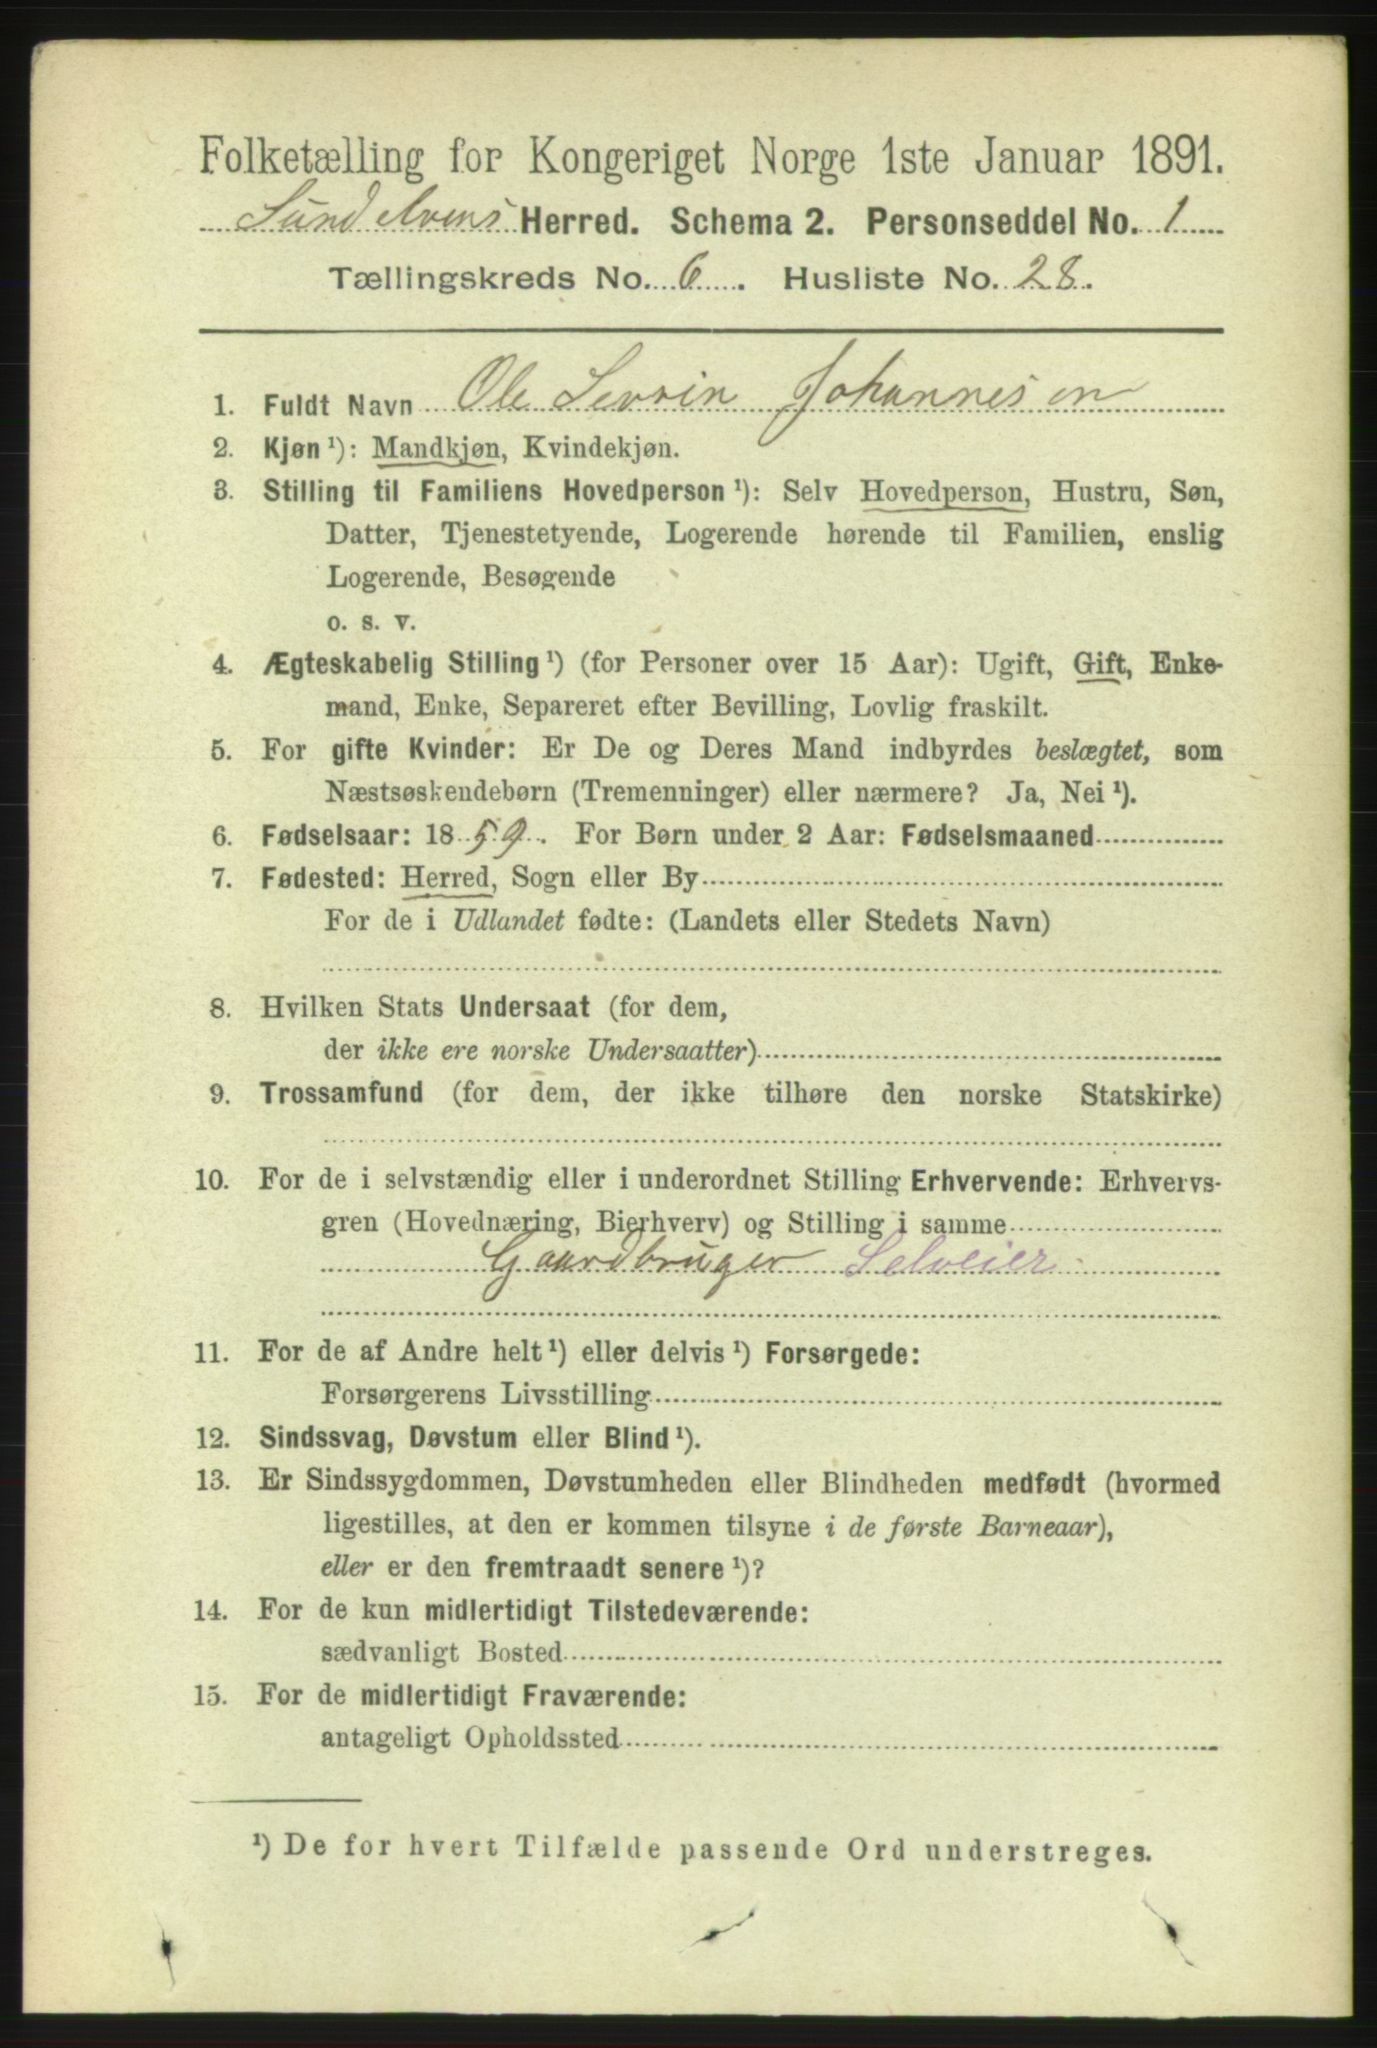 Folketælling for Kongeriget Norge 1ste Januar 1891.
Sundelvens Herred. Schema 2. Personseddel No. 1
Tællingskreds No. 6. Husliste No. 28.
1. Fuldt Navn Ole Severin Johannesen
2. Kjøn ¹): Mandkjøn, Kvindekjøn.
3. Stilling til Familiens Hovedperson ¹): Selv Hovedperson, Hustru, Søn,
Datter, Tjenestetyende, Logerende hørende til Familien, enslig
Logerende, Besøgende
o. s. v.
4. Ægteskabelig Stilling ¹) (for Personer over 15 Aar): Ugift, Gift, Enke-
mand, Enke, Separeret efter Bevilling, Lovlig fraskilt.
5. For gifte Kvinder: Er De og Deres Mand indbyrdes beslægtet, som
Næstsøskendebørn (Tremenninger) eller nærmere? Ja, Nei ¹).
6. Fødselsaar: 1859. For Børn under 2 Aar: Fødselsmaaned
7. Fødested: Herred, Sogn eller By
For de i Udlandet fødte: (Landets eller Stedets Navn)
8. Hvilken Stats Undersaat (for dem,
der ikke ere norske Undersaatter)
9. Trossamfund (for dem, der ikke tilhøre den norske Statskirke)
10. For de i selvstændig eller i underordnet Stilling Erhvervende: Erhvervs-
gren (Hovednæring, Bierhverv) og Stilling i samme
Gaardbruger Selveier
11. For de af Andre helt ¹) eller delvis ¹) Forsørgede:
Forsørgerens Livsstilling
12. Sindssvag, Døvstum eller Blind ¹).
13. Er Sindssygdommen, Døvstumheden eller Blindheden medfødt (hvormed
ligestilles, at den er kommen tilsyne i de første Barneaar),
eller er den fremtraadt senere ¹)?
14. For de kun midlertidigt Tilstedeværende:
sædvanligt Bosted
15. For de midlertidigt Fraværende:
antageligt Opholdssted
¹) De for hvert Tilfælde passende Ord understreges.